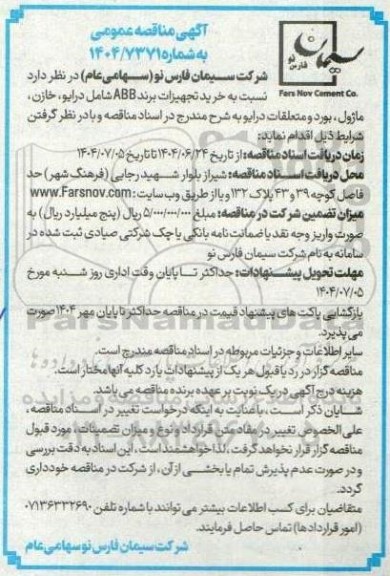 آگهی مناقصه عمومی
به شماره ۱۴۰۴/۷۳۷۱
سیمان فارس نو
Fars Nov Cement Co.
شرکت سیمان فارس نو (سهامی عام) در نظر دارد
نسبت به خرید تجهیزات برند ABB شامل درایو، خازن،
ماژول، بورد و متعلقات درایو به شرح مندرج در اسناد مناقصه و با در نظر گرفتن
شرایط ذیل اقدام نماید:
زمان دریافت اسناد مناقصه: از تاریخ ۱۴۰۴/۰۶/۲۴ تا تاریخ ۱۴۰۴/۰۷/۰۵
محل دریافت اسناد مناقصه: شیراز بلوار شهید رجایی (فرهنگ شهر) حد
فاصل کوچه ۳۹ و ۴۳ پلاک ۱۳۲ و یا از طریق وب سایت: www.Farsnov.com
میزان تضمین شرکت در مناقصه: مبلغ ۵/۰۰۰/۰۰۰/۰۰۰ ریال (پنج میلیارد ریال) به
صورت واریز وجه نقد یا ضمانت نامه بانکی یا چک شرکتی صیادی ثبت شده در
سامانه به نام شرکت سیمان فارس نو
مهلت تحویل پیشنهادات: حداکثر تا پایان وقت اداری روز شنبه مورخ
۱۴۰۴/۰۷/۰۵
بازگشایی پاکت های پیشنهاد قیمت در مناقصه حداکثر تا پایان مهر ۱۴۰۴ صورت
می پذیرد.
سایر اطلاعات و جزئیات مربوطه در اسناد مناقصه مندرج است.
مناقصه گزار در رد یا قبول هر یک از پیشنهادات یا رد کلیه آنها مختار است.
هزینه درج آگهی در یک نوبت بر عهده برنده مناقصه می باشد.
شایان ذکر است، با عنایت به اینکه درخواست تغییر در اسناد مناقصه،
علی الخصوص تغییر در مفاد متن قرارداد و نوع و میزان تضمینات، مورد قبول
مناقصه گزار قرار نخواهد گرفت، لذا خواهشمند است، این اسناد به دقت بررسی
و در صورت عدم پذیرش تمام یا بخشی از آن، از شرکت در مناقصه خودداری
گردد.
متقاضیان برای کسب اطلاعات بیشتر می توانند با شماره تلفن ۰۷۱۳۶۳۳۲۶۹۰
(امور قراردادها) تماس حاصل فرمایند.
شرکت سیمان فارس نو سهامی عام